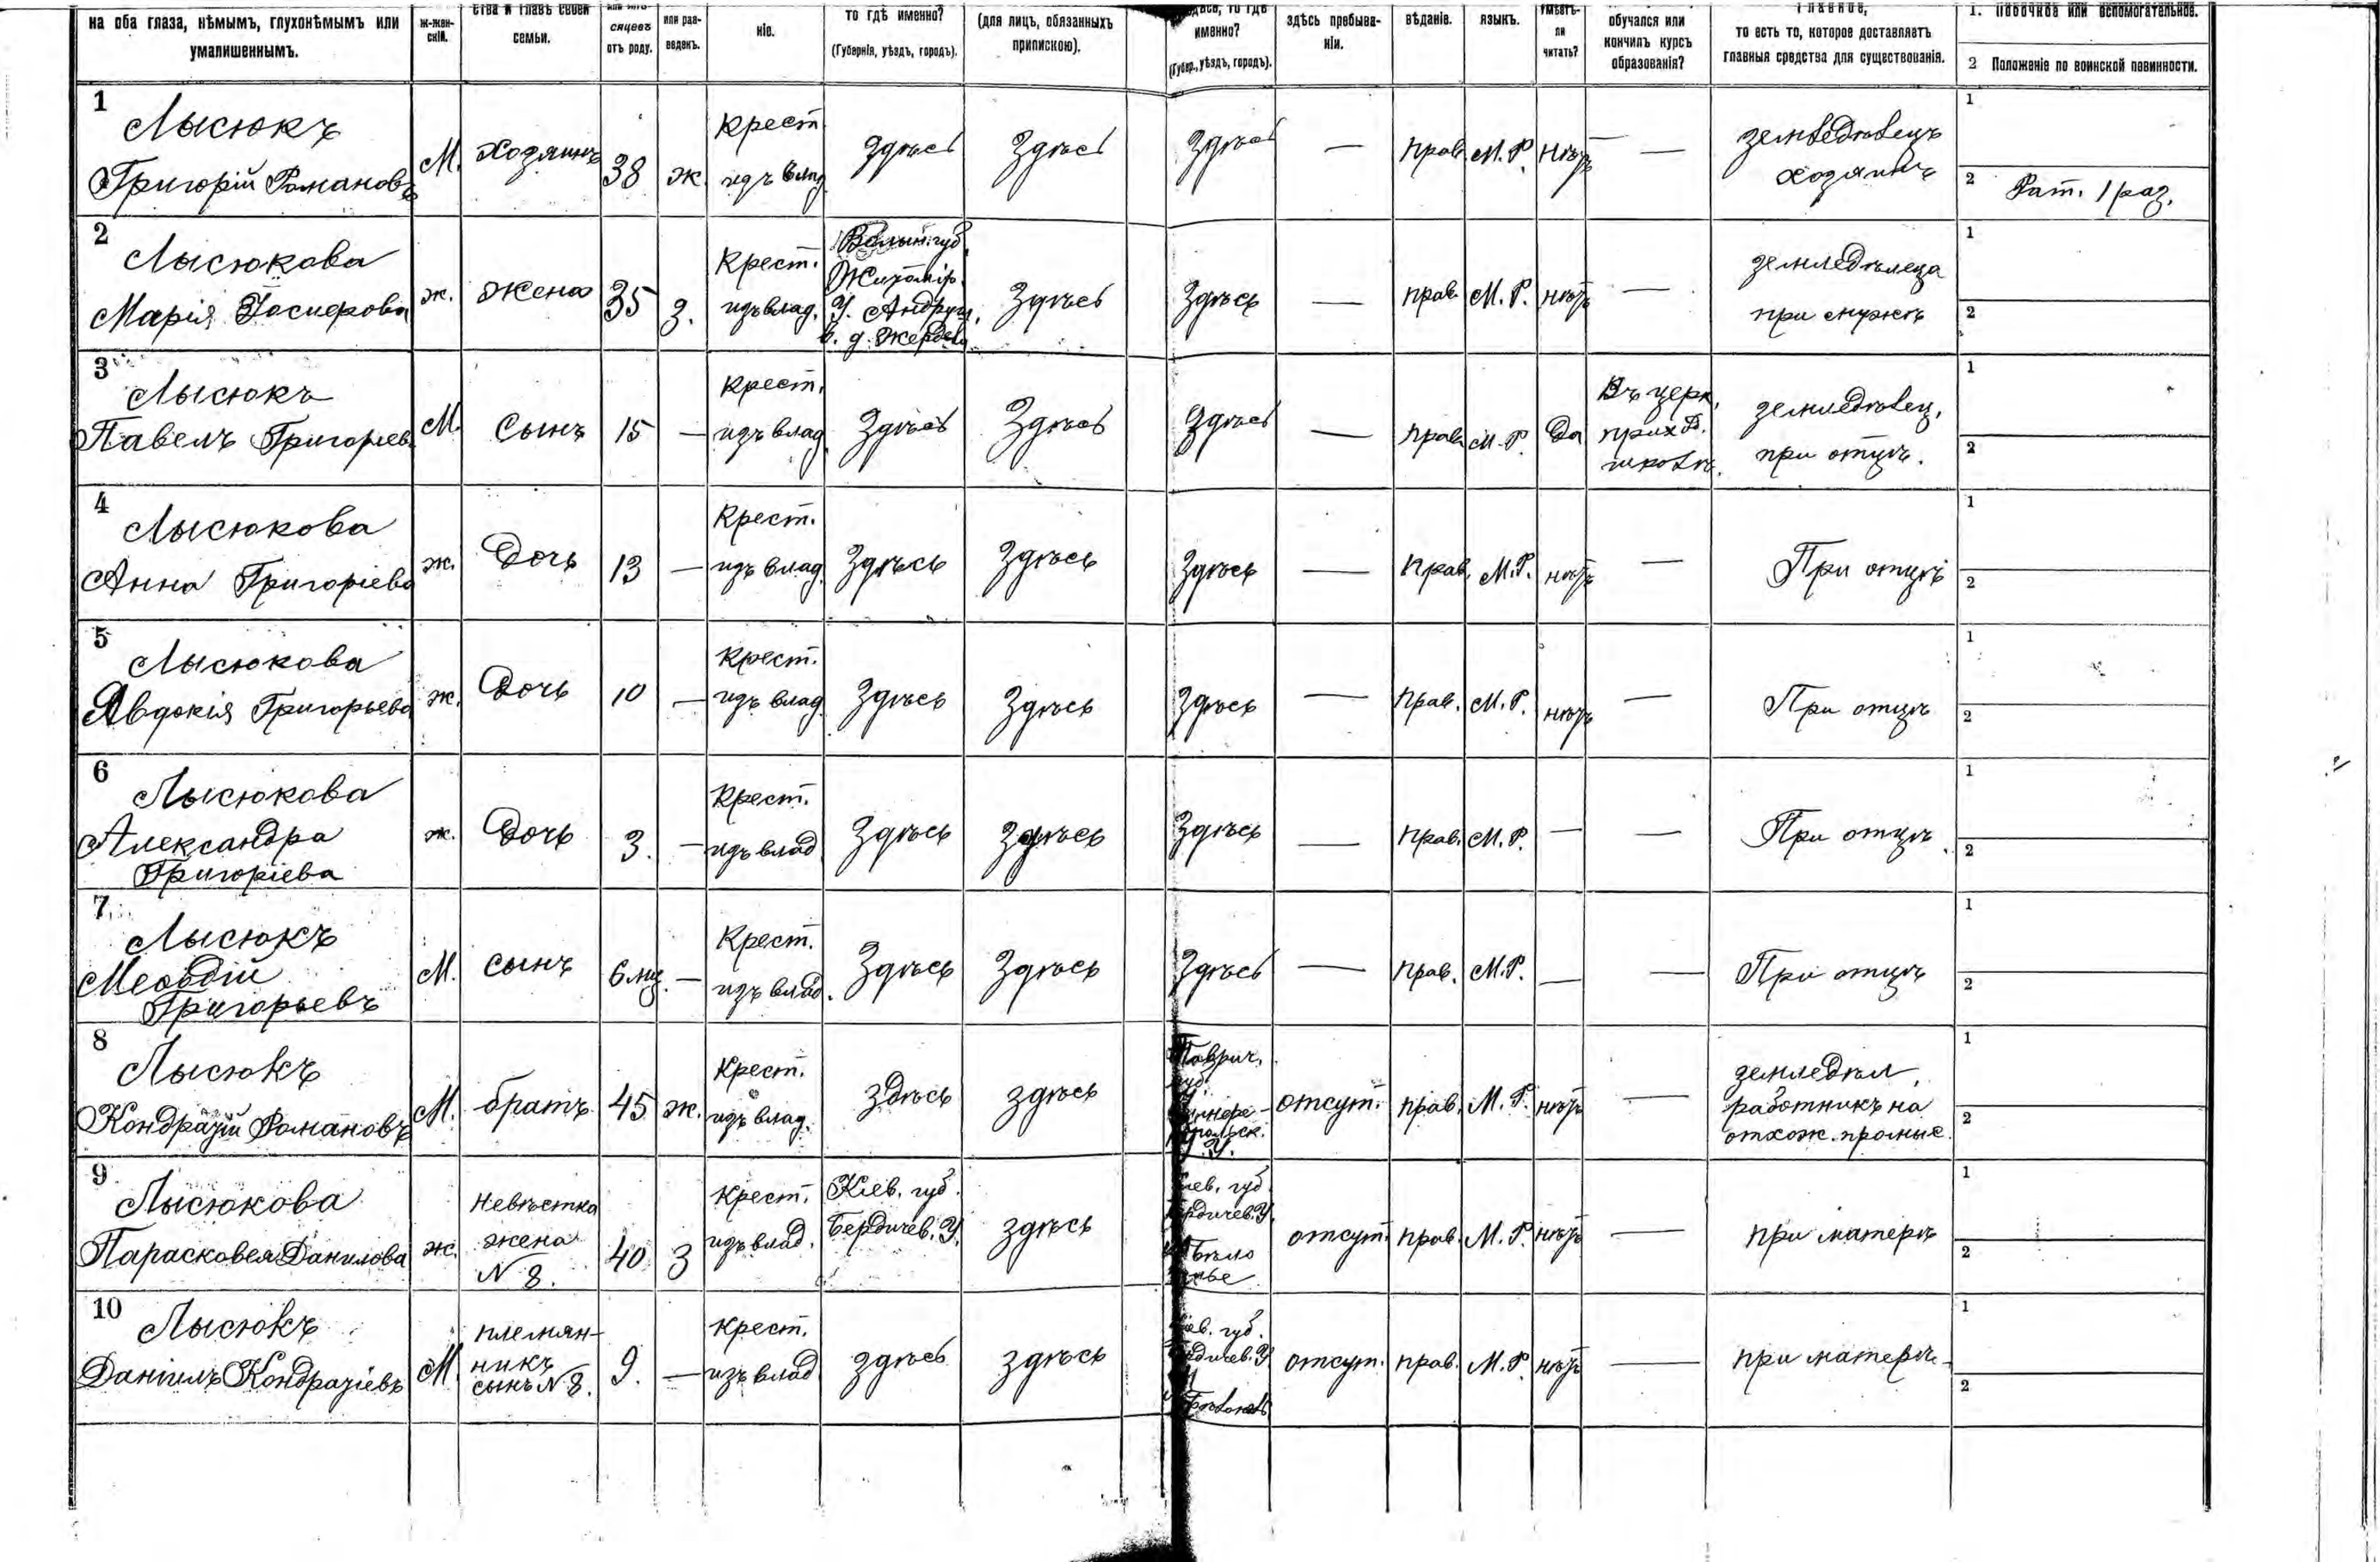 на оба глаза, нѣмымъ, глухонѣмымъ или
умалишеннымъ.
ж-жен-
скій.
ства и главѣ своей
семьи.
сяцевъ
отъ роду.
или раз-
веденъ.
ніе.
то гдѣ именно?
(Губернія, уѣздъ, городъ).
(для лицъ, обязанныхъ
припискою).
именно?
(Губер., уѣздъ, городъ).
здѣсь пребыва-
ніи.
вѣданіе.
языкъ.
умѣетъ-
ли
читать?
обучался или
кончилъ курсъ
образованія?
главное,
то есть то, которое доставляетъ
главныя средства для существованія.
1. Побочное или вспомогательное.
2 Положеніе по воинской повинности.
1
Лысюкъ
Григорій Романовъ
М.
хозяинъ
38
ж.
Крест.
изъ влад
здѣсь
Здѣсь
Здѣсь
—
прав.
М. Р.
нѣтъ
—
земледѣлецъ
хозяинъ
1
2 Рат. 1 раз.
2
Лысюкова
Марія
ж.
жена
35
з.
Крест.
изъ влад.
Волын. губ.
Житомір.
У. Андруш.
в. д.
Здѣсь
Здѣсь
—
прав.
М. Р.
нѣтъ
—
земледѣлеца
при мужѣ
1
2
3
Лысюкъ
Павелъ Григорьев
М.
Сынъ
15
—
Крест.
изъ влад
Здѣсь
Здѣсь
Здѣсь
—
прав.
М. Р.
Да
Въ церк.
прих.
школѣ.
земледѣлец.
при отцѣ.
1
2
4
Лысюкова
Анна Григоріева
ж.
Дочь
13
—
Крест.
изъ влад.
Здѣсь
Здѣсь
Здѣсь
—
Прав.
М. Р.
нѣтъ
—
При отцѣ
1
2
5
Лысюкова
Явдокія Григорьева
ж.
Дочь
10
—
Крест.
изъ влад.
Здѣсь
Здѣсь
Здѣсь
—
прав.
М. Р.
нѣтъ
—
При отцѣ
1
2
6
Лысюкова
Александра
Григоріева
ж.
Дочь
3.
—
Крест.
изъ влад
Здѣсь
Здѣсь
Здѣсь
—
прав.
М. Р.
—
—
При отцѣ
1
2
7
Лысюкъ
Меѳодій
Григорьевъ
М.
сынъ
6 мц.
—
Крест.
изъ влад.
Здѣсь
Здѣсь
Здѣсь
—
прав.
М. Р.
—
—
При отцѣ
1
2
8
Лысюкъ
Кондратій Романовъ
М.
братъ
45
ж.
Крест.
изъ влад.
здѣсь
здѣсь
Таврич.
губ.
У.
отсут.
прав.
М. Р.
нѣтъ
—
земледѣл.
работникъ на
отхож. промыс.
1
2
9
Лысюкова
Парасковея Данилова
ж.
невѣстка
жена
N 8.
40
З
Крест.
изъ влад.
Кіев. губ.
Бердичев. У.
здѣсь
отсут.
прав.
М. Р.
нѣтъ
—
при матерѣ
1
2
10
Лысюкъ
Даніилъ Кондратіевъ
М.
племян-
никъ
сынъ N 8.
9.
—
крест.
изъ влад
здѣсь
здѣсь
отсут.
прав.
М. Р.
нѣтъ
—
при матерѣ
1
2